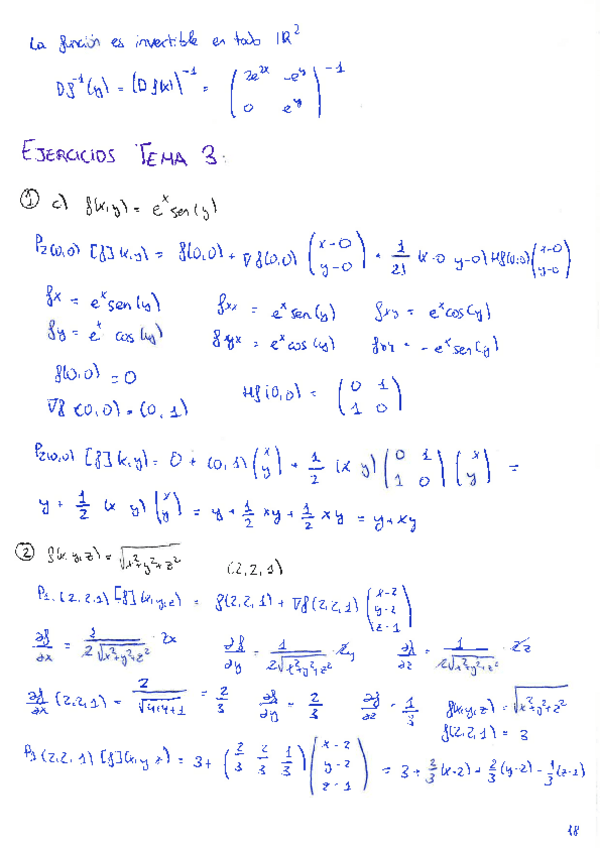 La función es invertible en todo IR²
Df⁻¹(y) = (Df(x))⁻¹ = ( 2e^{2x} -e^y ; 0 e^y )⁻¹
EJERCICIOS TEMA 3:
① c) f(x,y) = e^x sen(y)
P₂(0,0) [f](x,y) = f(0,0) + ∇f(0,0) ( x-0 ; y-0 ) + 1/2! (x-0 y-0) Hf(0,0) ( x-0 ; y-0 )
fx = e^x sen(y) fxx = e^x sen(y) fxy = e^x cos(y)
fy = e^x cos(y) fyx = e^x cos(y) = -e^x sen(y)
f(0,0) = 0
Hf(0,0) = ( 0 1 ; 1 0 )
∇f(0,0) = (0,1)
P₂(0,0) [f](x,y) = 0 + (0,1) ( x ; y ) + 1/2 (x y) ( 0 1 ; 1 0 ) ( x ; y ) =
y + 1/2 (x y) ( x ; y ) = y + 1/2 xy + 1/2 xy = y + xy
② f(x,y,z) = √(x²+y²+z²) (2,2,1)
P₁,(2,2,1) [f](x,y,z) = f(2,2,1) + ∇f(2,2,1) ( x-2 ; y-2 ; z-1 )
∂f/∂x = 1/(2√(x²+y²+z²)) · 2x ∂f/∂y = 1/(2√(x²+y²+z²)) · 2y ∂f/∂z = 1/(2√(x²+y²+z²)) · 2z
∂f/∂x (2,2,1) = 2/√(4+4+1) = 2/3 ∂f/∂y = 2/3 ∂f/∂z = 1/3 f(x,y,z) = √(x²+y²+z²)
f(2,2,1) = 3
(2,2,1) [f](x,y,z) = 3 + ( 2/3 2/3 1/3 ) ( x-2 ; y-2 ; z-1 ) = 3 + 2/3 (x-2) + 2/3 (y-2) - 1/3 (z-1)
18